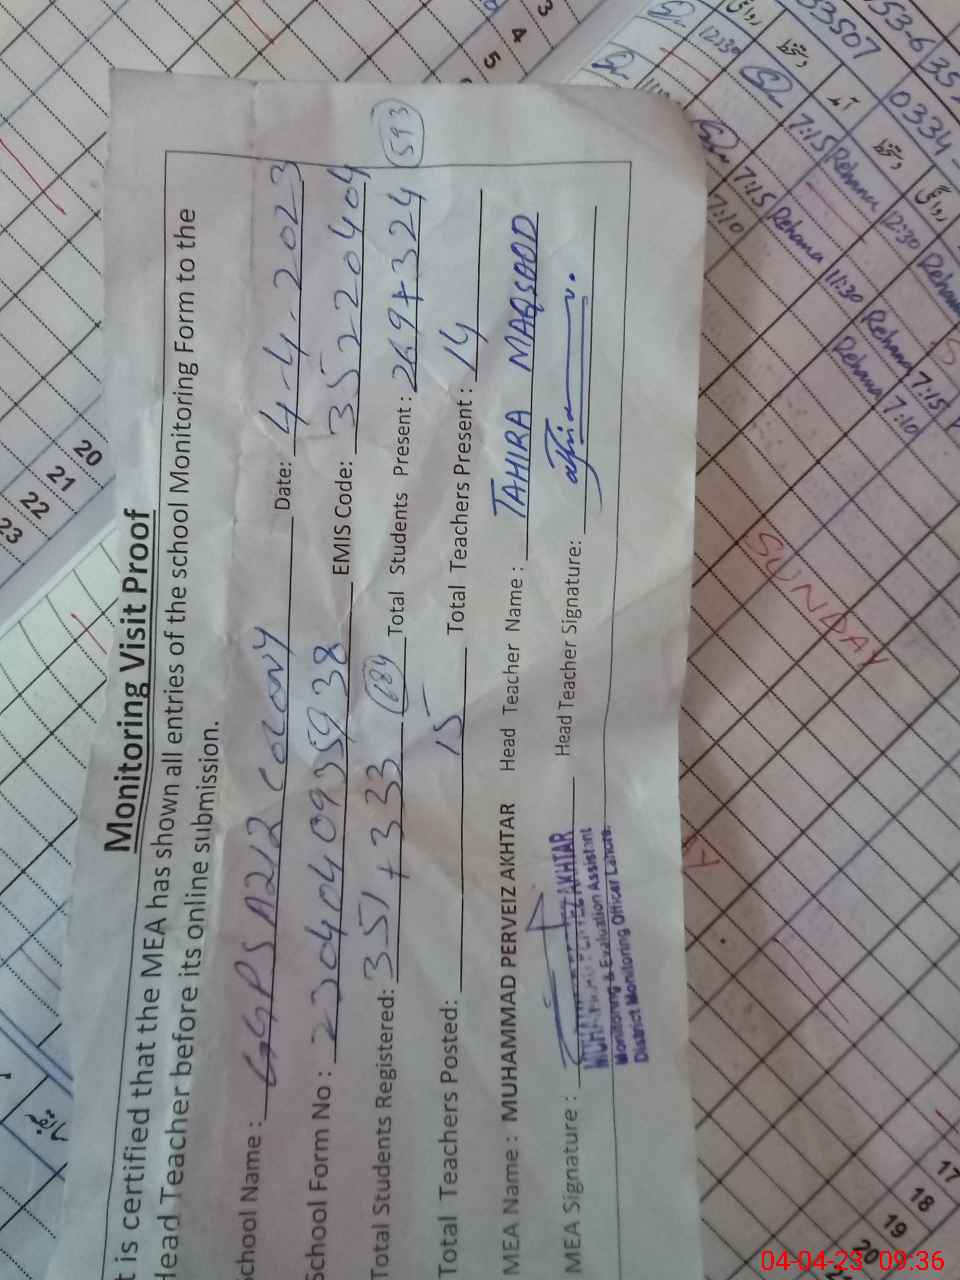 Monitoring Visit Proof
t is certified that the MEA has shown all entries of the school Monitoring Form to the
Head Teacher before its online submission.
School Name: GGPS A212 COLONY Date: 4-4-2023
School Form No: 23040409359 38 EMIS Code: 35220404
Total Students Registered: 351+333 684 Total Students Present: 269+324 593
Total Teachers Posted: 15 Total Teachers Present: 14
MEA Name: MUHAMMAD PERVEIZ AKHTAR Head Teacher Name: TAHIRA MAQSOOD
MEA Signature: Head Teacher Signature:
AKHTAR
Monitoring & Evaluation Assistant
District Monitoring Officer Lahore.
3
4
5
20
21
22
23
33507
0334
12:30
7:15
Rehana
12:30
Rehana
7:15
Rehana
11:30
Rehana
7:15
7:10
Rehana
7:10
SUNDAY
17
18
19
20
04-04-23 09:36